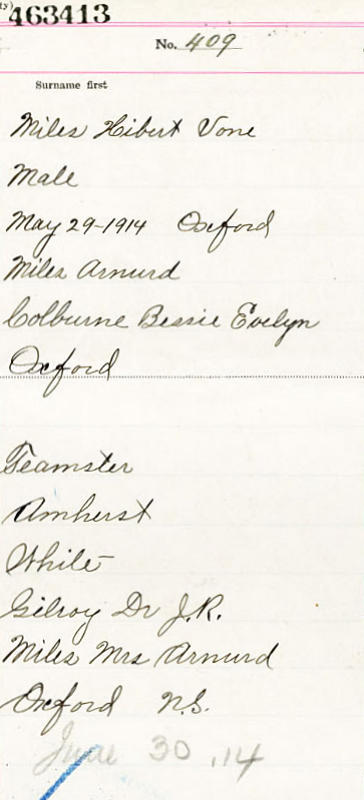 ty)
463413
No. 409
Surname first
Miles Hibert Vone
Male
May 29-1914 Oxford
Miles Arnurd
Colburne Bessie Evelyn
Oxford
Teamster
Amherst
White
Gilroy Dr J.R.
Miles Mrs Arnurd
Oxford N.S.
June 30 .14